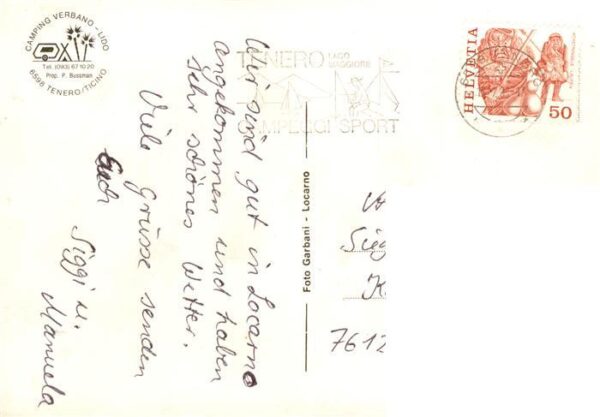 CAMPING VERBANO - LIDO
Tel. (093) 67 10 20
Prop. P. Bussman
6598 TENERO/TICINO
TENERO LAGO MAGGIORE
CAMPEGGI SPORT
HELVETIA
50
Wir sind gut in Locarno
angekommen und haben
sehr schönes Wetter.
Viele Grüsse senden
Euch
Siggi u.
Manuela
Foto Garbani - Locarno
7612